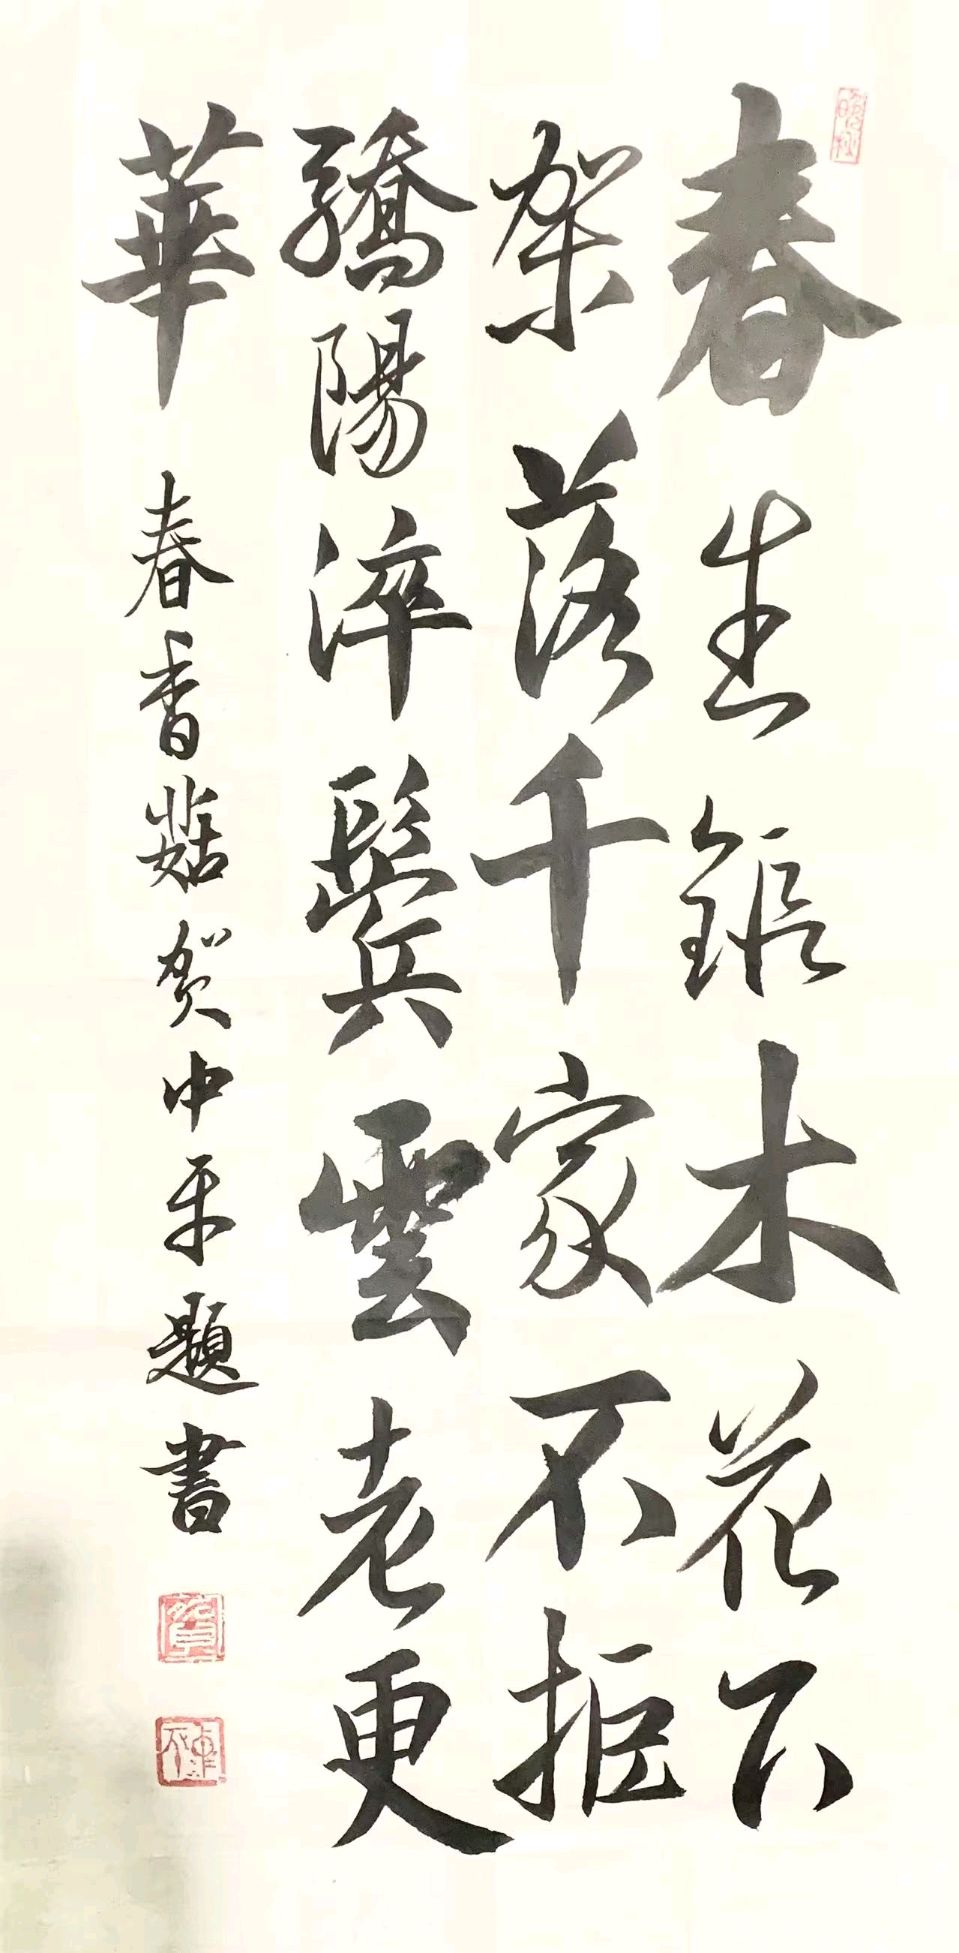 春生鉅木花下
架落千家不拒
驕陽淬鬢雲老更
華 春香菇贺中平題書